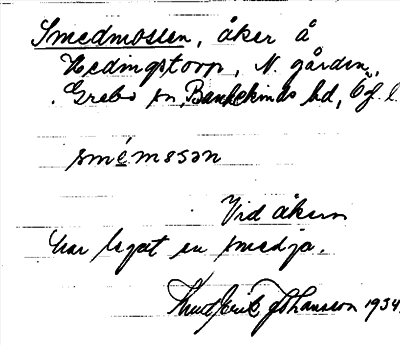 Smedmossen, åker å
Hedingstorp, N. gården,
Grebo sn, Bankekinds hd, Ög. l.
smémɵsən
Vid åkern
har legat en smedja.
Knut Erik Johansson 1934.